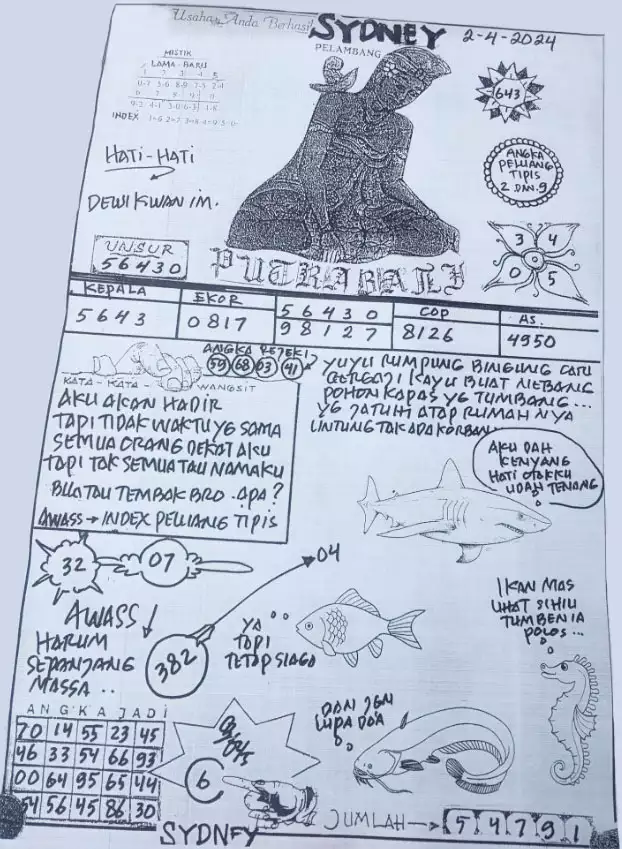 Usaha Anda Berhasil
SYDNEY
2-4-2024
PELAMBANG
MISTIK
LAMA-BARU
INDEX
643
HATI-HATI
DEWI KWAN IM.
ANGKA
PELUANG
TIPIS
2 DAN 9
UNSUR
56430
3 4
0 5
PUTRA BALI
KEPALA
5643
EKOR
0817
56430
98127
COP
8126
AS.
4950
ANGKA REJEKI
59 68 03 41
KATA-KATA-WANGSIT
AKU AKAN HADIR
TAPI TIDAK WAKTU YG SAMA
SEMUA ORANG DEKAT AKU
TAPI TAK SEMUA TAU NAMAKU
BUATAU TEMBAK BRO.APA?
AWASS→INDEX PELUANG TIPIS
YUYU RUMPUNG BINGUNG CARI
GERGAJI KAYU BUAT NEBANG
POHON KAPAS YG TUMBANG...
YG JATUH ATAP RUMAH NYA
UNTUNG TAK ADA KORBAN
AKU DAH
KENYANG
HATI OTAKKU
UDAH TENANG
32
07
04
AWASS!
HARUM
SEPANJANG
MASSA..
382
YA
TAPI
TETAP SIAGA
IKAN MAS
LIHAT SIHIU
TUMBEN IA
POLOS...
DAN JGN
LUPA DOA
ANGKA JADI
70 14 55 23 45
46 33 54 66 93
00 64 95 65 44
54 56 45 86 30
6
SYDNEY
JUMLAH→54791